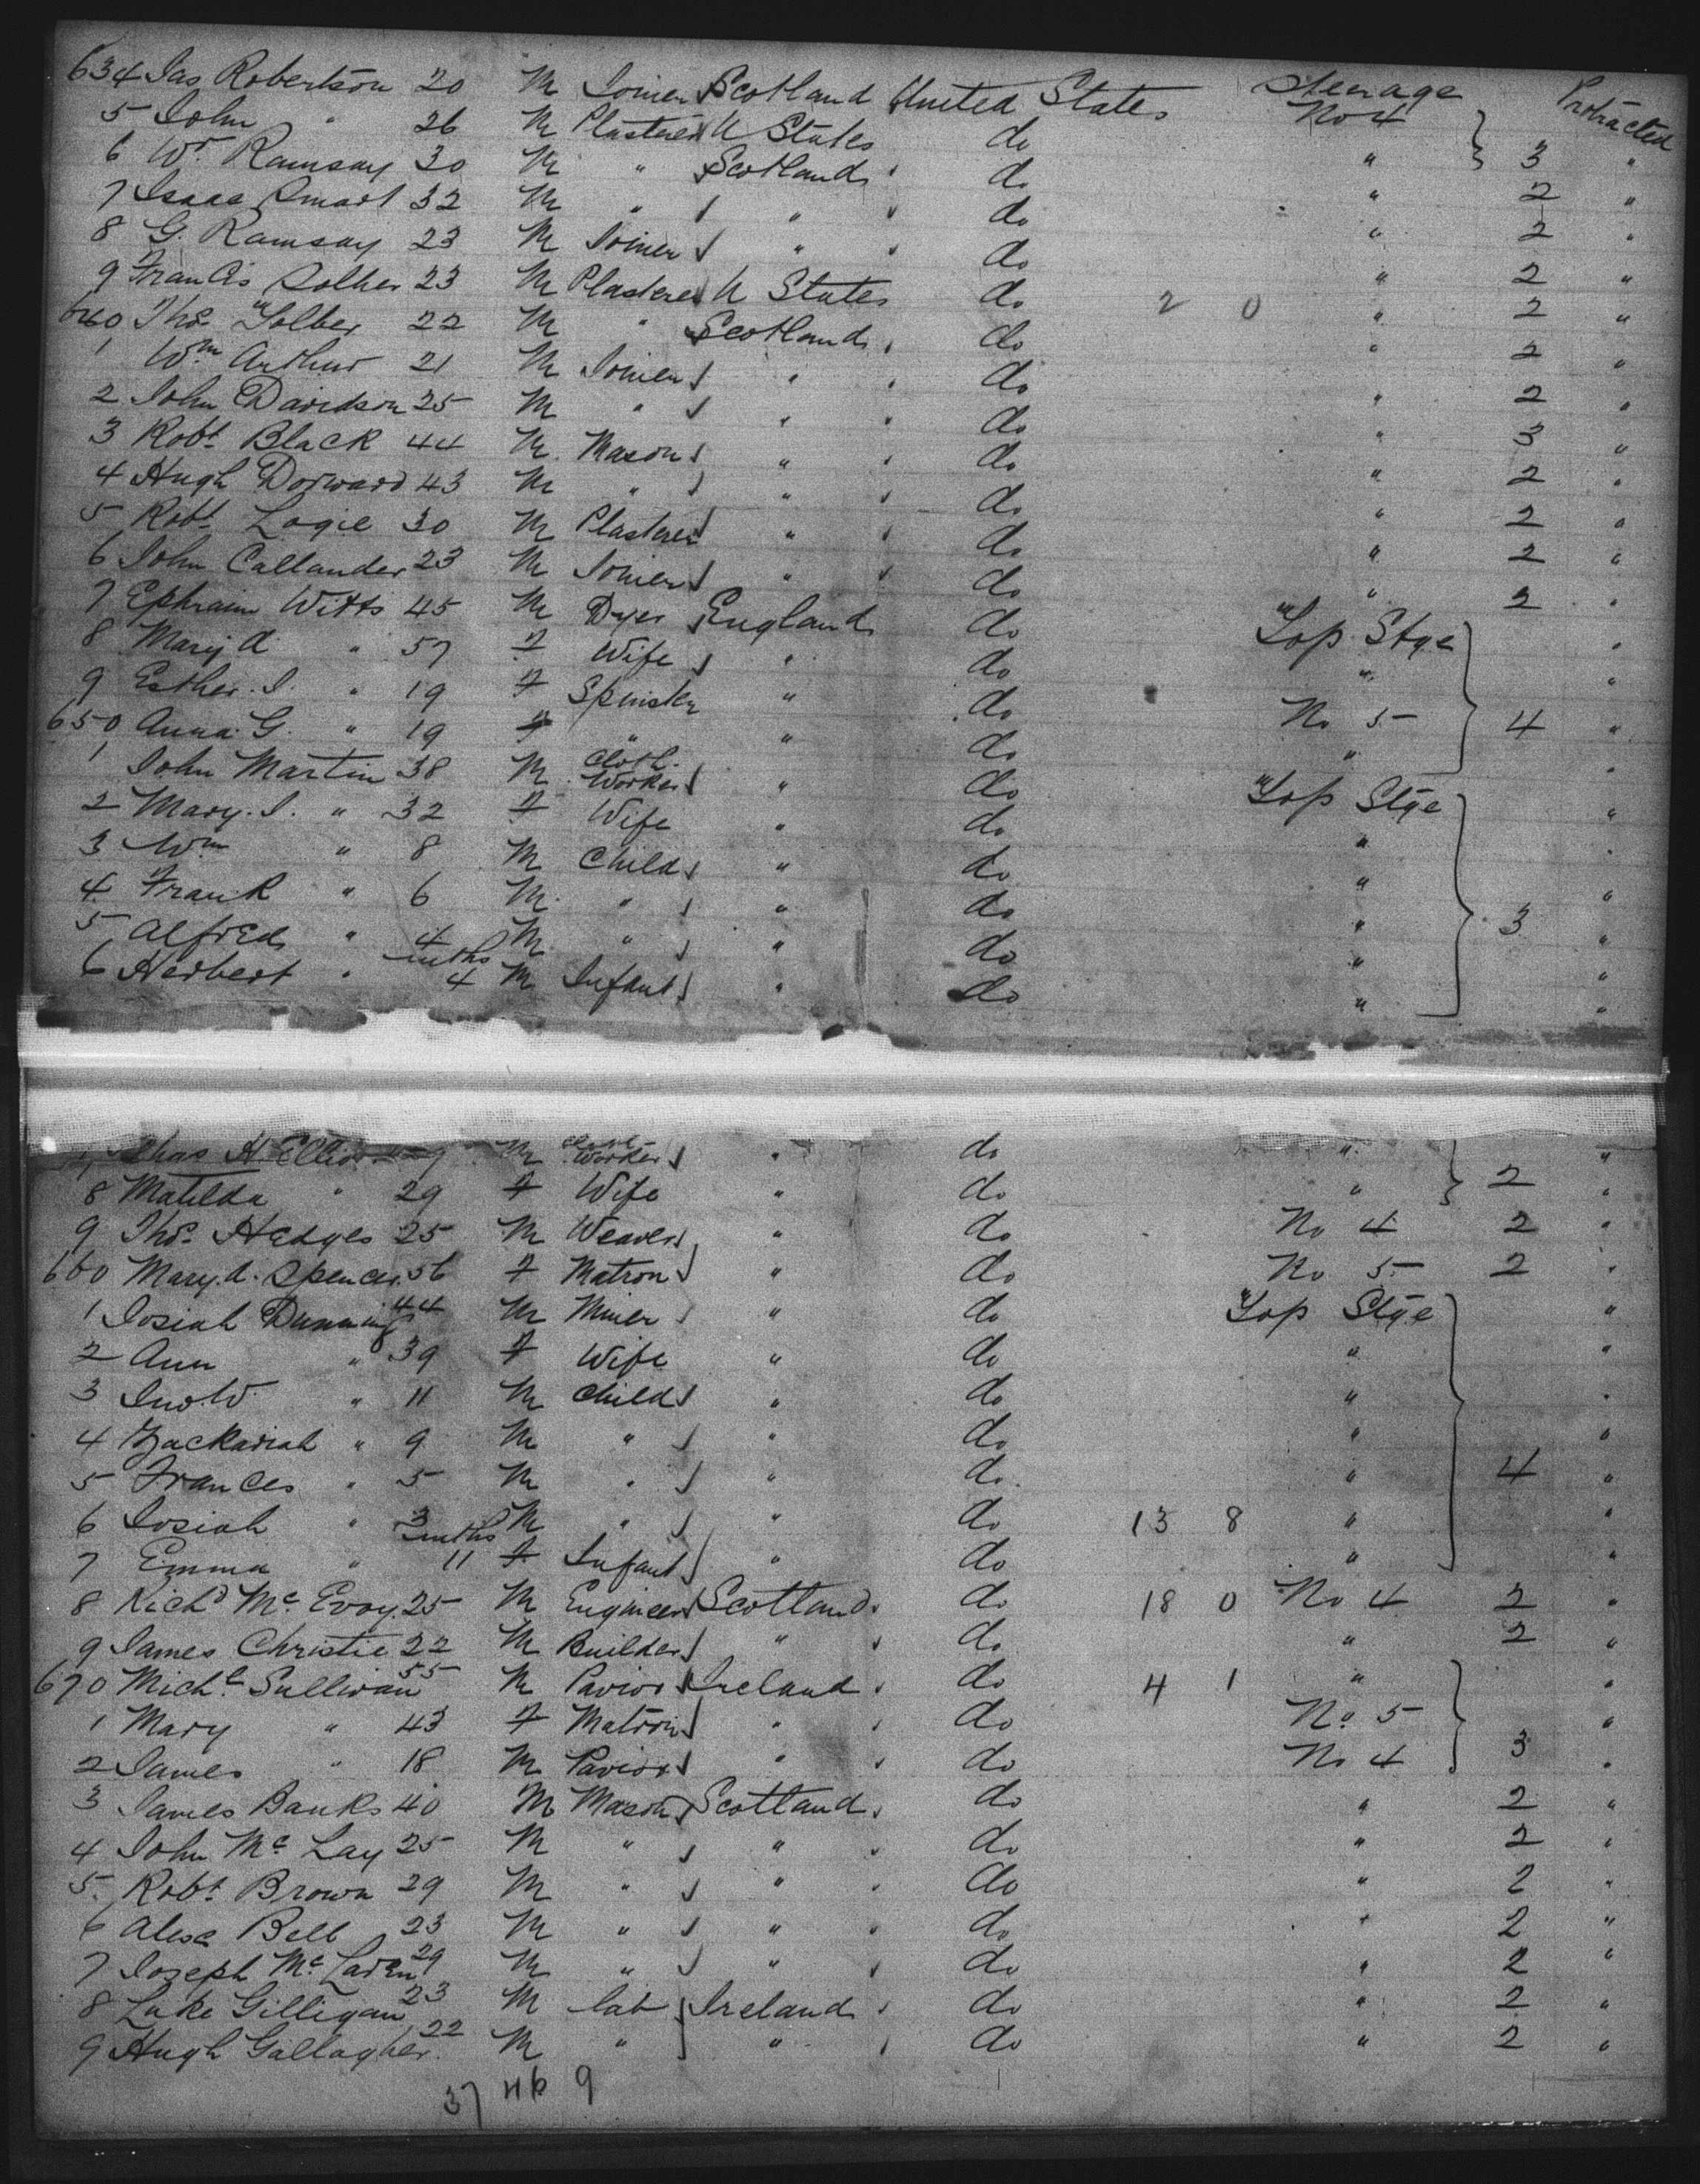 634 Jas Robertson 20 M Joiner Scotland United States Steerage No 4 Protracted
5 John " 26 M Plasterer U States do " 3 "
6 Wm Ramsay 30 M " Scotland do " 2 "
7 Isaac Smart 32 M " " do " 2 "
8 G. Ramsay 23 M Joiner " do " 2 "
9 Francis 23 M Plasterer U States do 2 0 " 2 "
640 Thos 22 M " Scotland do " 2 "
1 Wm Arthur 21 M Joiner " do " 2 "
2 John Davidson 25 M " " do " 3 "
3 Robt Black 44 M Mason " do " 2 "
4 Hugh Dorward 43 M " " do " 2 "
5 Robt Logie 30 M Plasterer " do " 2 "
6 John Callander 23 M Joiner " do " 2 "
7 Ephraim Witts 45 M Dyer England do Top Stge "
8 Mary A " 57 F Wife " do " "
9 Esther J. " 19 F Spinster " do No 5 4 "
650 Anna G. " 19 F " " do " "
1 John Martin 38 M Cloth Worker " do Top Stge "
2 Mary J. " 32 F Wife " do " "
3 Wm " 8 M Child " do " "
4 Frank " 6 M " " do " 3 "
5 Alfred " 4 M " " do " "
6 Herbert " mths 4 M Infant " do " "
Chas H Elliott 29 M Worker " do " "
8 Matilda " 29 F Wife " do " 2 "
9 Thos Hedges 25 M Weaver " do No 4 2 "
660 Mary A. Spencer 56 F Matron " do No 5 2 "
1 Josiah Dunning 44 M Miner " do Top Stge "
2 Ann " 39 F Wife " do " "
3 Jno. W. " 11 M Child " do " "
4 Zackariah " 9 M " " do " "
5 Frances " 5 M " " do " 4 "
6 Josiah " 3 M " " do 13 8 " "
7 Emma " mths 11 F Infant " do " "
8 Richd Mc Evoy 25 M Engineer Scotland do 18 0 No 4 2 "
9 James Christie 22 M Builder " do " 2 "
670 Michl Sullivan 55 M Pavior Ireland do 4 1 " "
1 Mary " 43 F Matron " do No 5 "
2 James " 18 M Pavior " do No 4 3 "
3 James Banks 40 M Mason Scotland do " 2 "
4 John Mc Lay 25 M " " do " 2 "
5 Robt Brown 29 M " " do " 2 "
6 Alex Bell 23 M " " do " 2 "
7 Joseph Mc Laren 29 M " " do " 2 "
8 Luke Gilligan 23 M lab Ireland do " 2 "
9 Hugh Gallagher 22 M " " do " 2 "
37 9